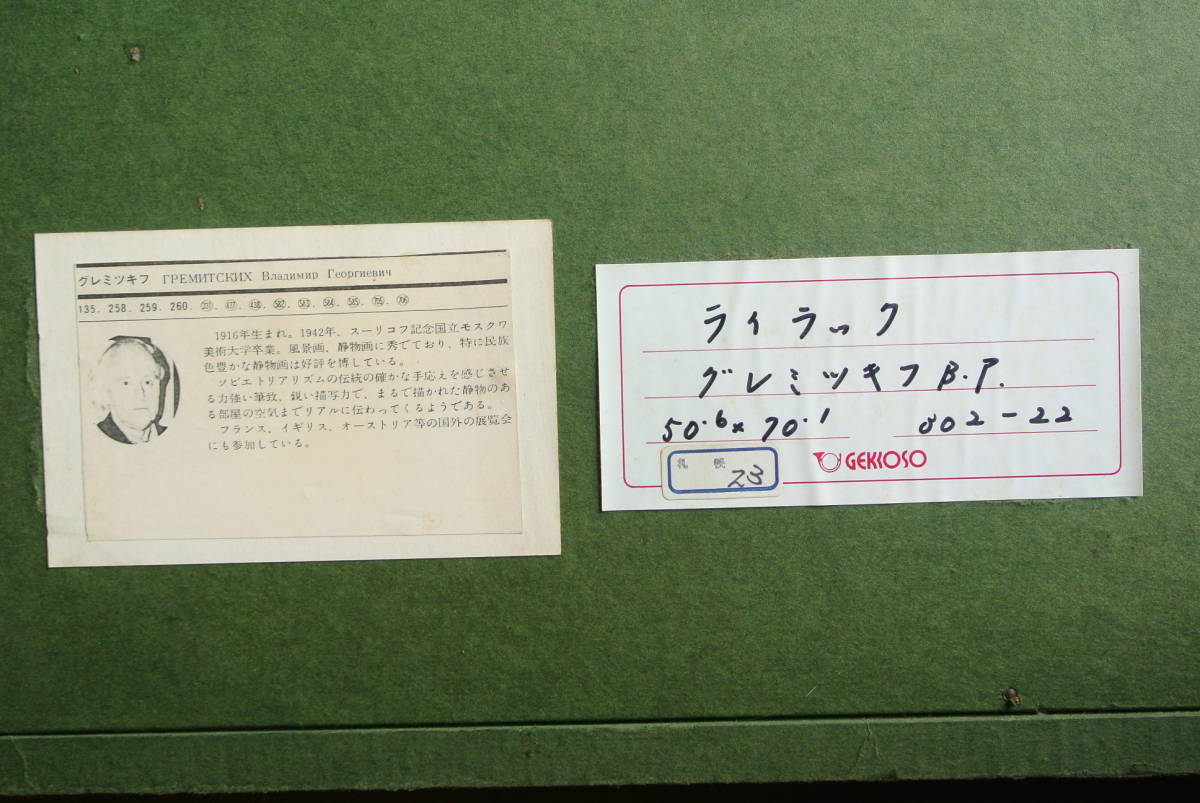 グレミツキフ ГРЕМИТСКИХ Владимир Георгиевич
135. 258. 259. 260.
1916年生まれ。1942年、スーリコフ記念国立モスクワ
美術大学卒業。風景画、静物画に秀でており、特に民族
色豊かな静物画は好評を博している。
ソビエトリアリズムの伝統の確かな手応えを感じさせ
る力強い筆致、鋭い描写力で、まるで描かれた静物のあ
る部屋の空気までリアルに伝わってくるようである。
フランス、イギリス、オーストリア等の国外の展覧会
にも参加している。
ライラック
グレミツキフ В.Г.
50.6× 70.1
802-22
GEKKOSO
札幌
23